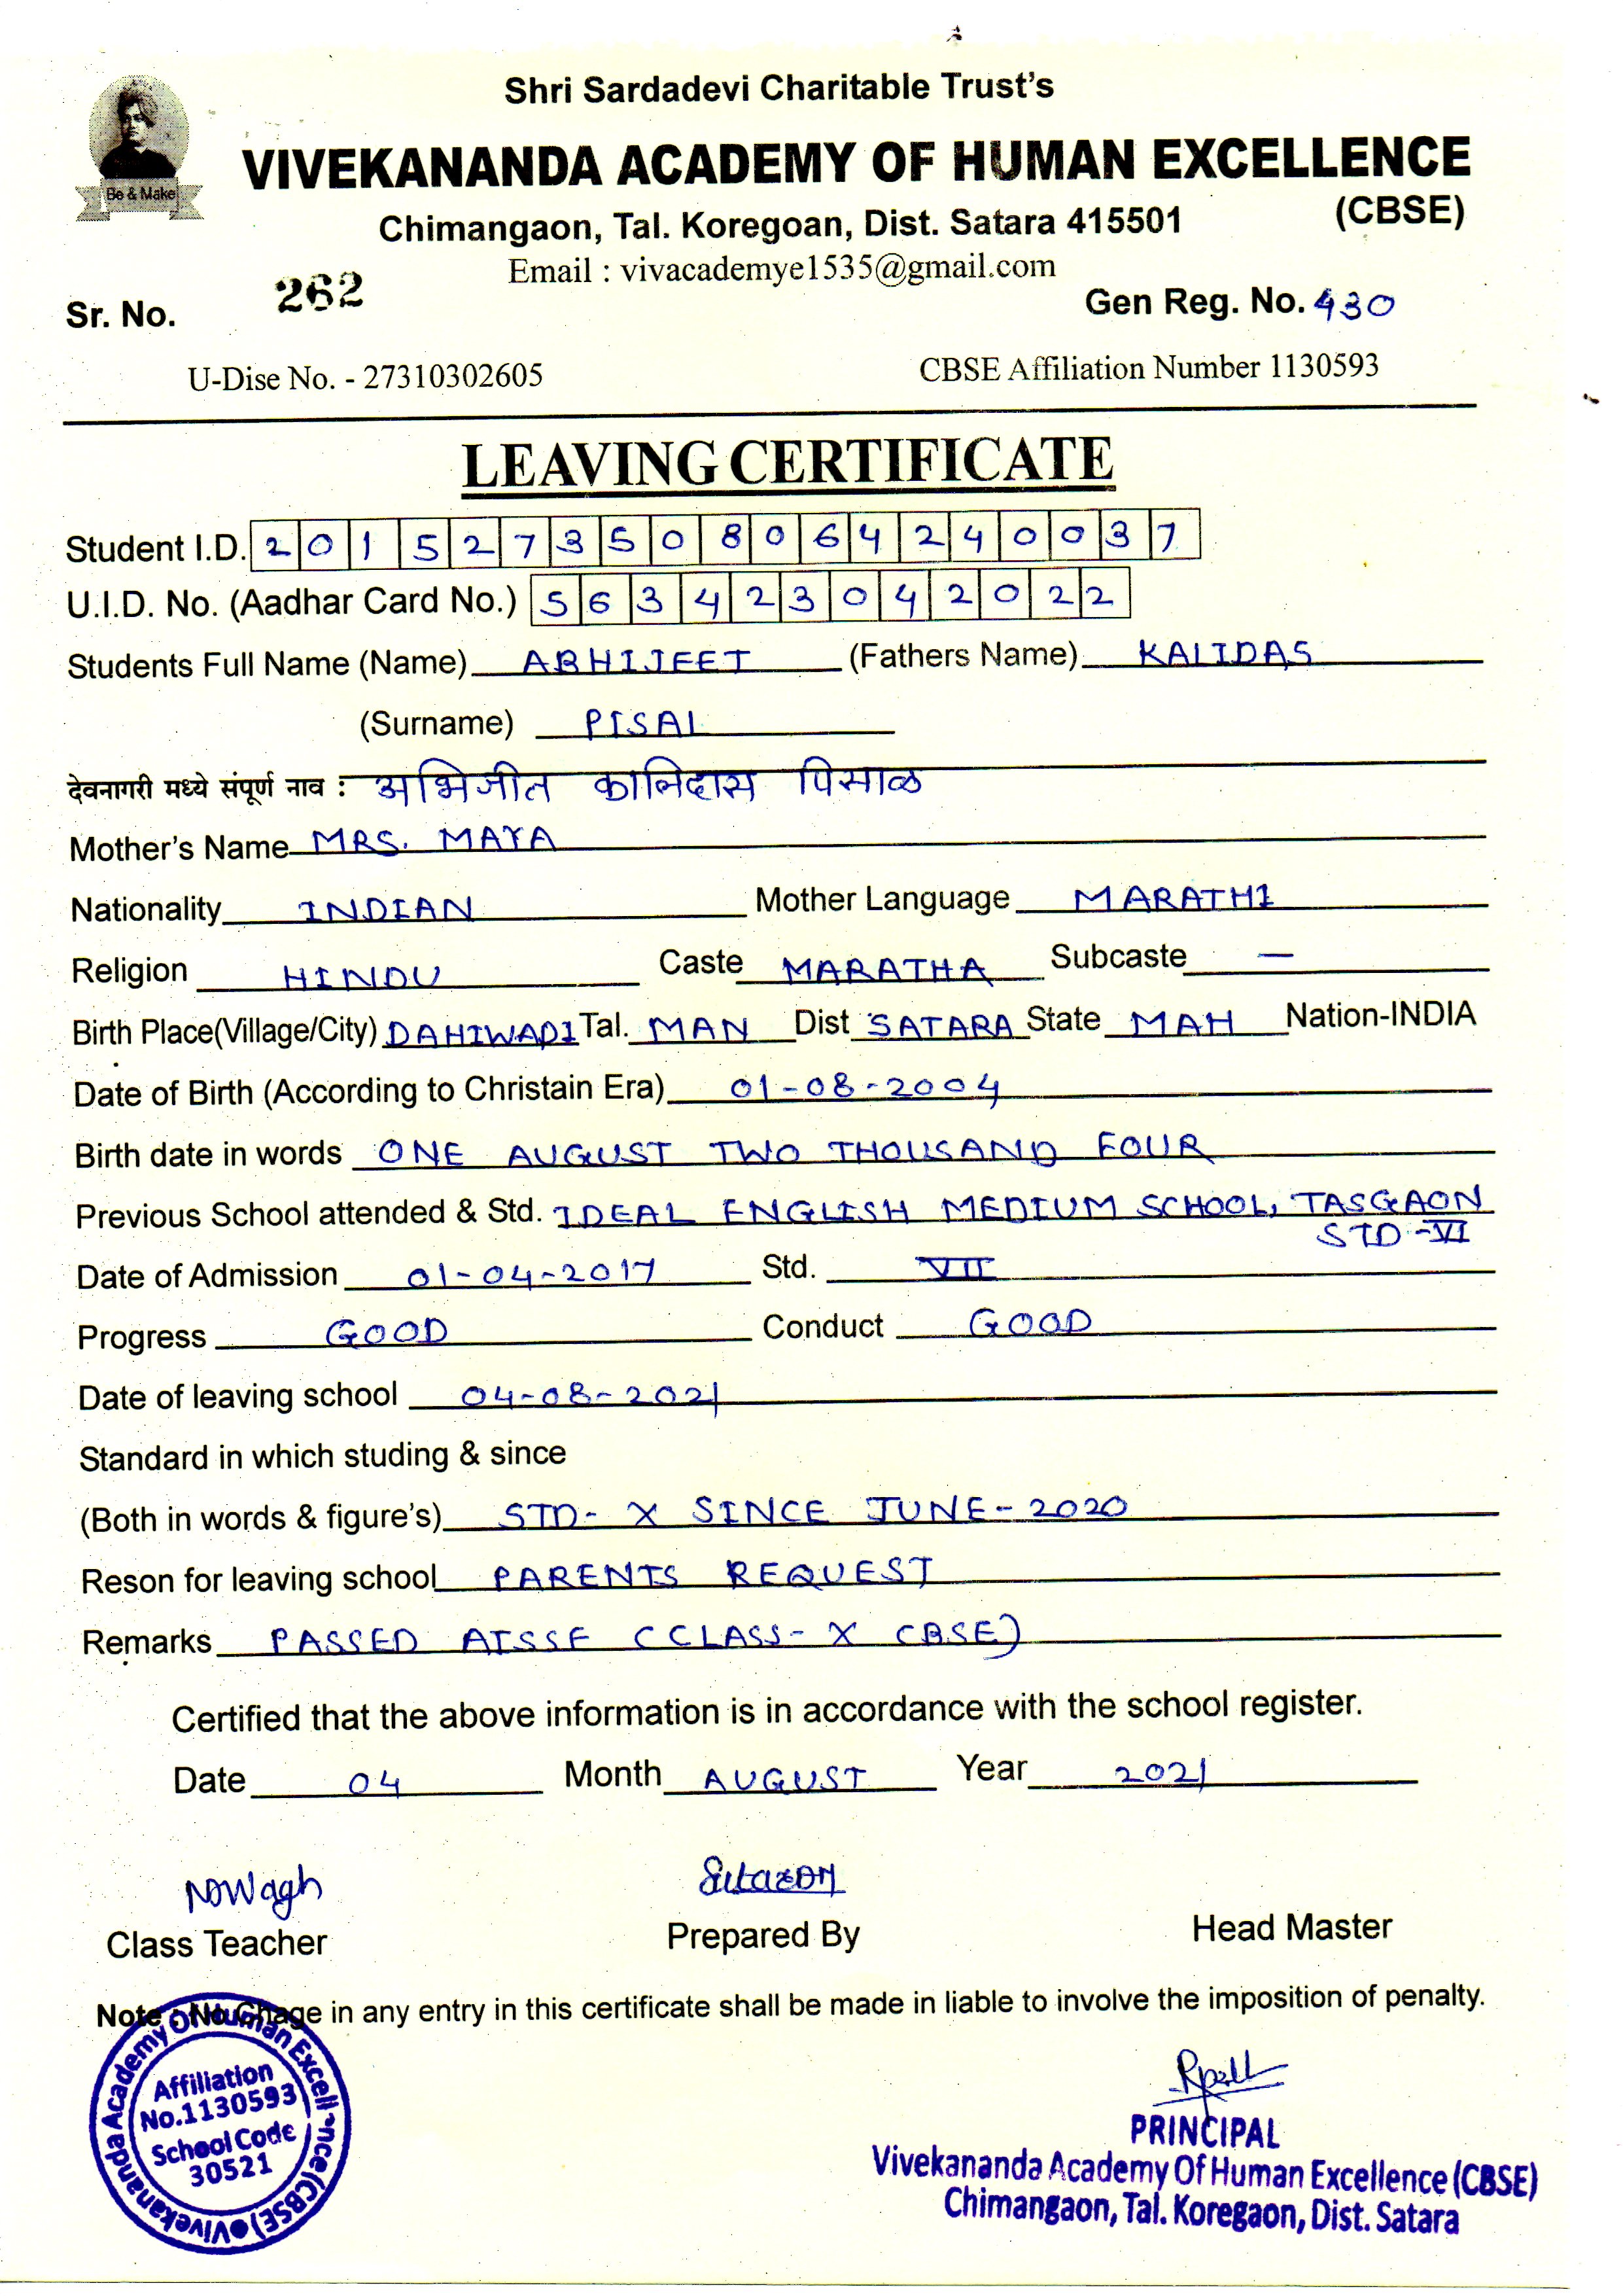 Shri Sardadevi Charitable Trust's
Be & Make
VIVEKANANDA ACADEMY OF HUMAN EXCELLENCE
(CBSE)
Chimangaon, Tal. Koregoan, Dist. Satara 415501
Email : vivacademye1535@gmail.com
Sr. No. 262 Gen Reg. No. 430
U-Dise No. - 27310302605 CBSE Affiliation Number 1130593
LEAVING CERTIFICATE
Student I.D. 2015273508064240037
U.I.D. No. (Aadhar Card No.) 563423042022
Students Full Name (Name) ABHIJEET (Fathers Name) KALIDAS
(Surname) PISAL
देवनागरी मध्ये संपूर्ण नाव : अभिजीत कालिदास पिसाळ
Mother's Name MRS. MAYA
Nationality INDIAN Mother Language MARATHI
Religion HINDU Caste MARATHA Subcaste —
Birth Place(Village/City) DAHIWADI Tal. MAN Dist SATARA State MAH Nation-INDIA
Date of Birth (According to Christain Era) 01-08-2004
Birth date in words ONE AUGUST TWO THOUSAND FOUR
Previous School attended & Std. IDEAL ENGLISH MEDIUM SCHOOL, TASGAON
STD-VI
Date of Admission 01-04-2017 Std. VII
Progress GOOD Conduct GOOD
Date of leaving school 04-08-2021
Standard in which studing & since
(Both in words & figure's) STD- X SINCE JUNE-2020
Reson for leaving school PARENTS REQUEST
Remarks PASSED AISSE (CLASS-X CBSE)
Certified that the above information is in accordance with the school register.
Date 04 Month AUGUST Year 2021
NDWagh
Class Teacher Prepared By Head Master
Note : No Chage in any entry in this certificate shall be made in liable to involve the imposition of penalty.
Vivekananda Academy Of Human Excellence (CBSE)
Affiliation
No.1130593
School Code
30521
PRINCIPAL
Vivekananda Academy Of Human Excellence (CBSE)
Chimangaon, Tal. Koregaon, Dist. Satara